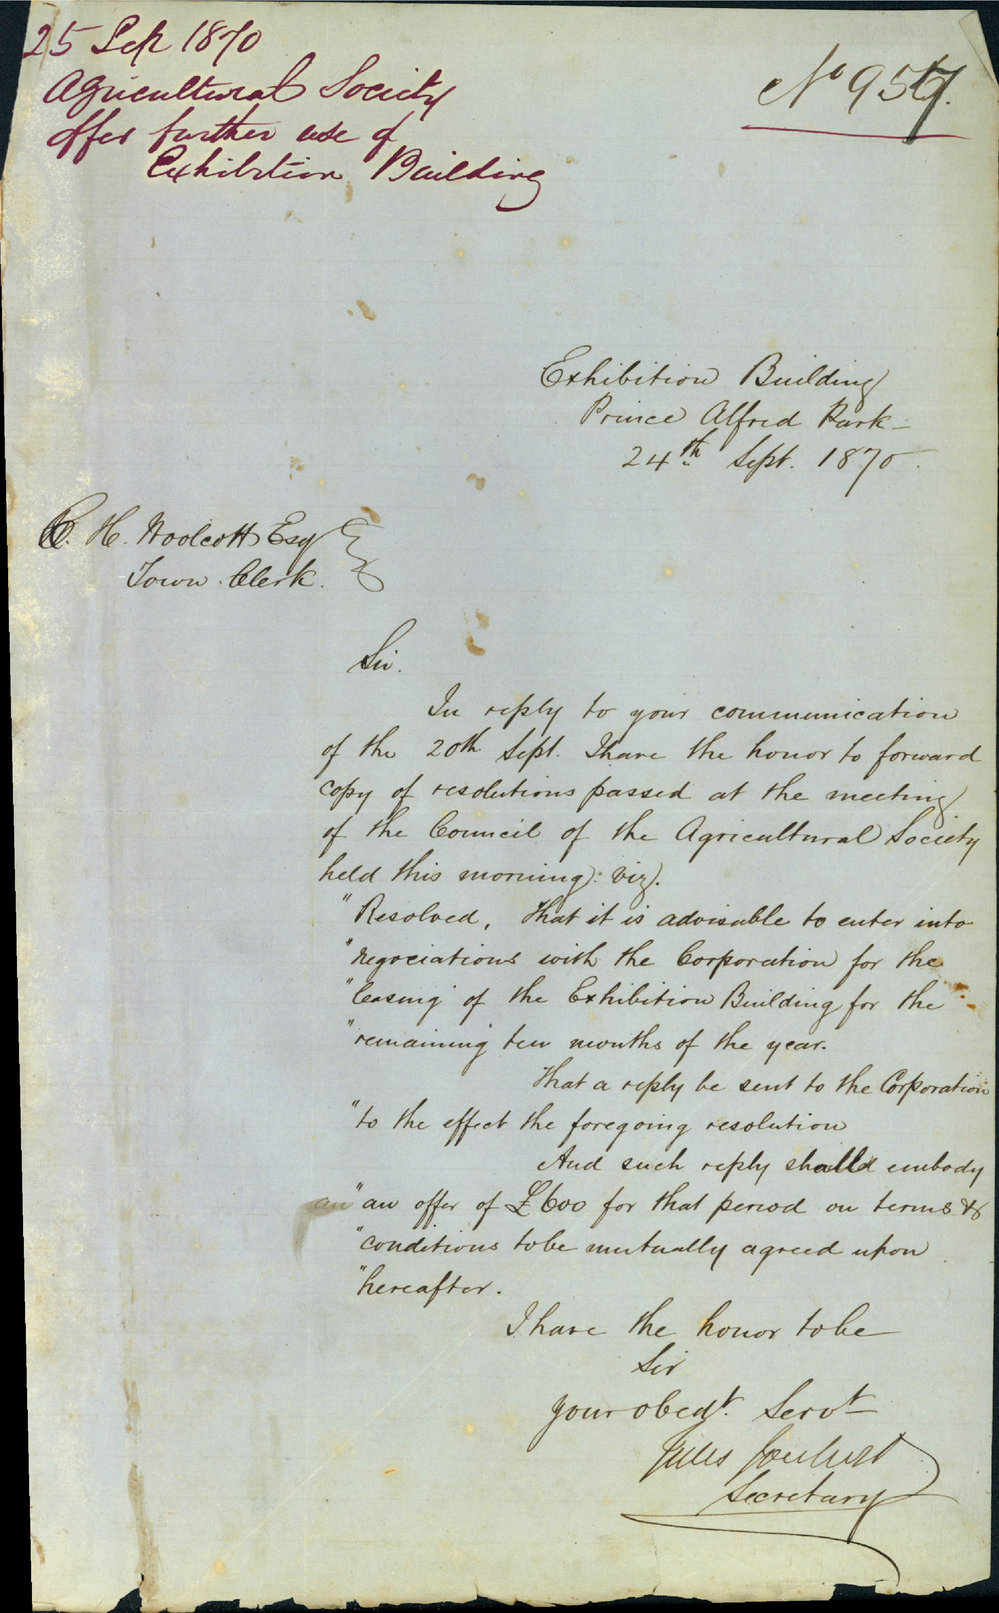 25 Sep 1870
Agricultural Society
offer further use of
Exhibition Building
No 957.
Exhibition Building
Prince Alfred Park -
24th Sept. 1870.
C. H. Woolcott Esq
Town Clerk.
Sir.
In reply to your communication
of the 20th Sept. I have the honor to forward
copy of resolutions passed at the meeting
of the Council of the Agricultural Society
held this morning: viz.
"Resolved, that it is advisable to enter into
"negociations with the Corporation for the
"leasing of the Exhibition Building for the
"remaining ten months of the year.
that a reply be sent to the Corporation
"to the effect the foregoing resolution
And such reply shall embody
an "an offer of £600 for that period on terms &
"conditions to be mutually agreed upon
"hereafter.
I have the honor to be
Sir
your obedt. Servt
Jules Joubert
Secretary